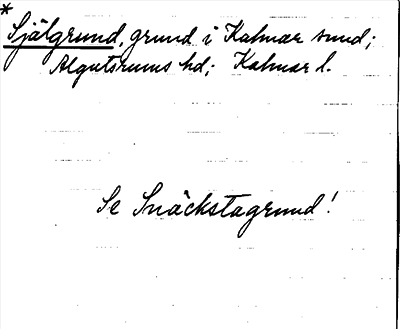 *
Själgrund, grund i Kalmar sund;
Algutsrums hd; Kalmar l.
Se Snäckstagrund!